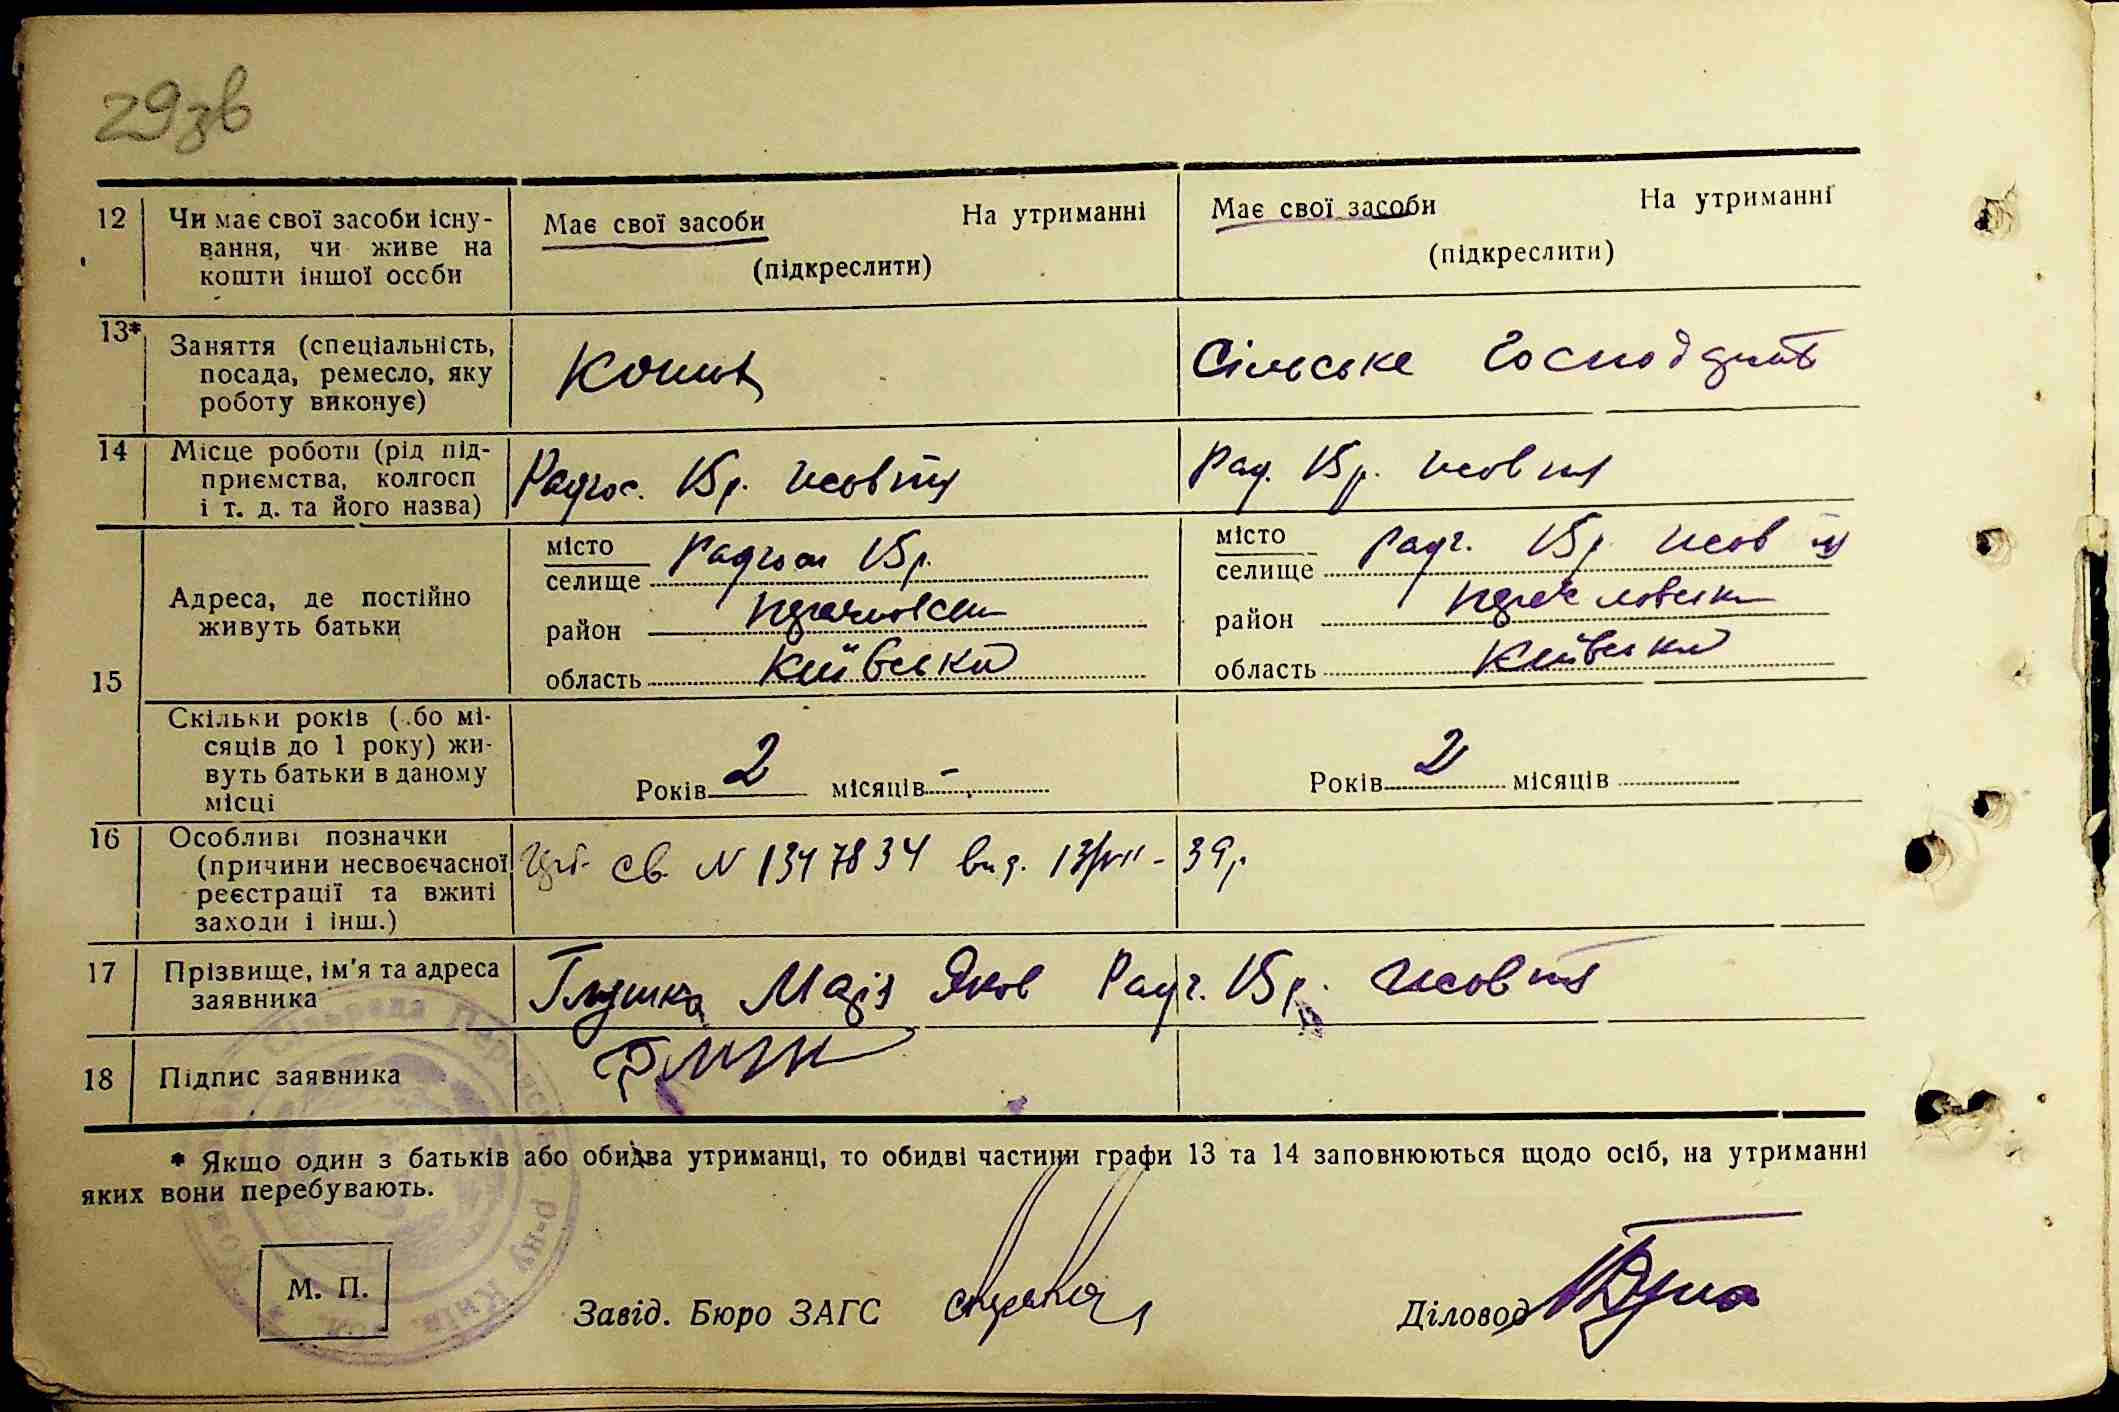 29зв
12 Чи має свої засоби існу- Має свої засоби На утриманні Має свої засоби На утриманні
вання, чи живе на (підкреслити) (підкреслити)
кошти іншої особи
13* Заняття (спеціальність, Сільське
посада, ремесло, яку
роботу виконує)
14 Місце роботи (рід під- Радгос. 15р. жовтня Рад. 15р. жовтня
приємства, колгосп
і т. д. та його назва)
15 Адреса, де постійно
живуть батьки
місто Радгосп 15р. місто Радг. 15р. жовтня
селище селище
район район
область Київська область Київська
Скільки років (.бо мі-
сяців до 1 року) жи-
вуть батьки в даному
місці
Років 2 місяців - Років 2 місяців
16 Особливі позначки св. N 1347834 вид. 13/VII-39р.
(причини несвоєчасної
реєстрації та вжиті
заходи і інш.)
17 Прізвище, ім'я та адреса Глушка Марія Яков Радг. 15р. жовтня
заявника
18 Підпис заявника
* Якщо один з батьків або обидва утриманці, то обидві частини графи 13 та 14 заповнюються щодо осіб, на утриманні
яких вони перебувають.
М. П.
Завід. Бюро ЗАГС Діловод